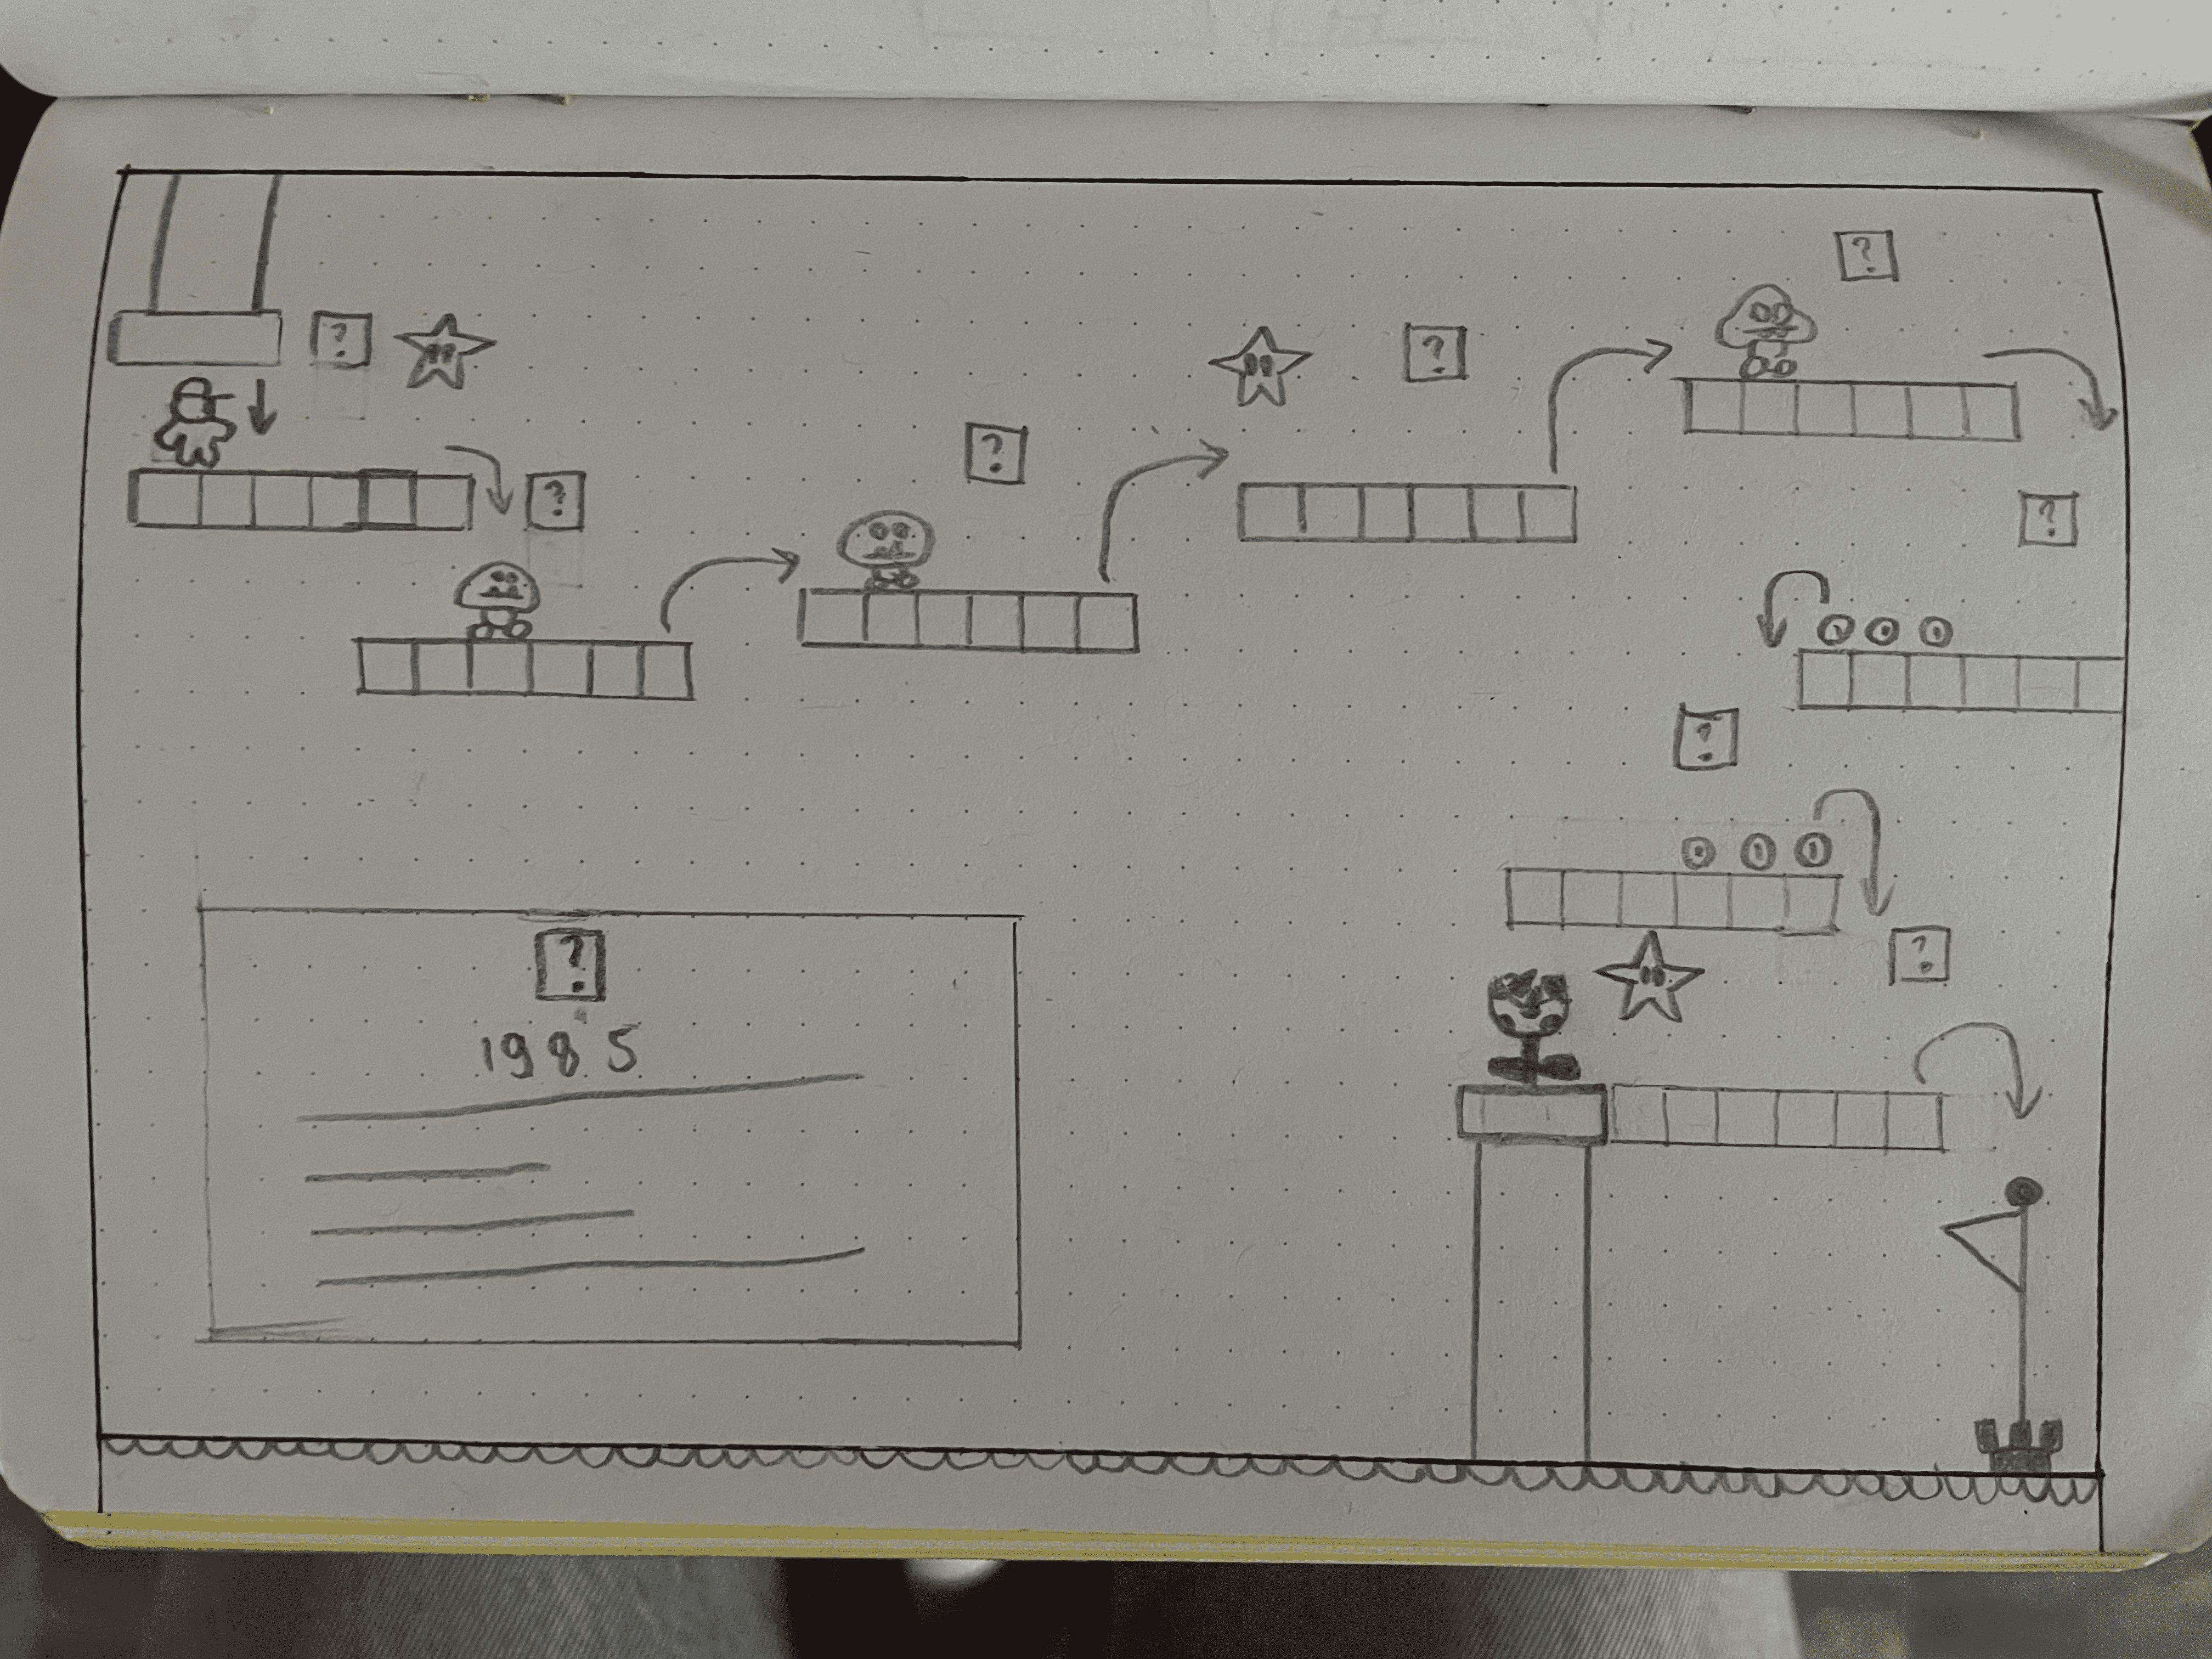 ?
?
?
?
?
?
?
?
?
?
1985